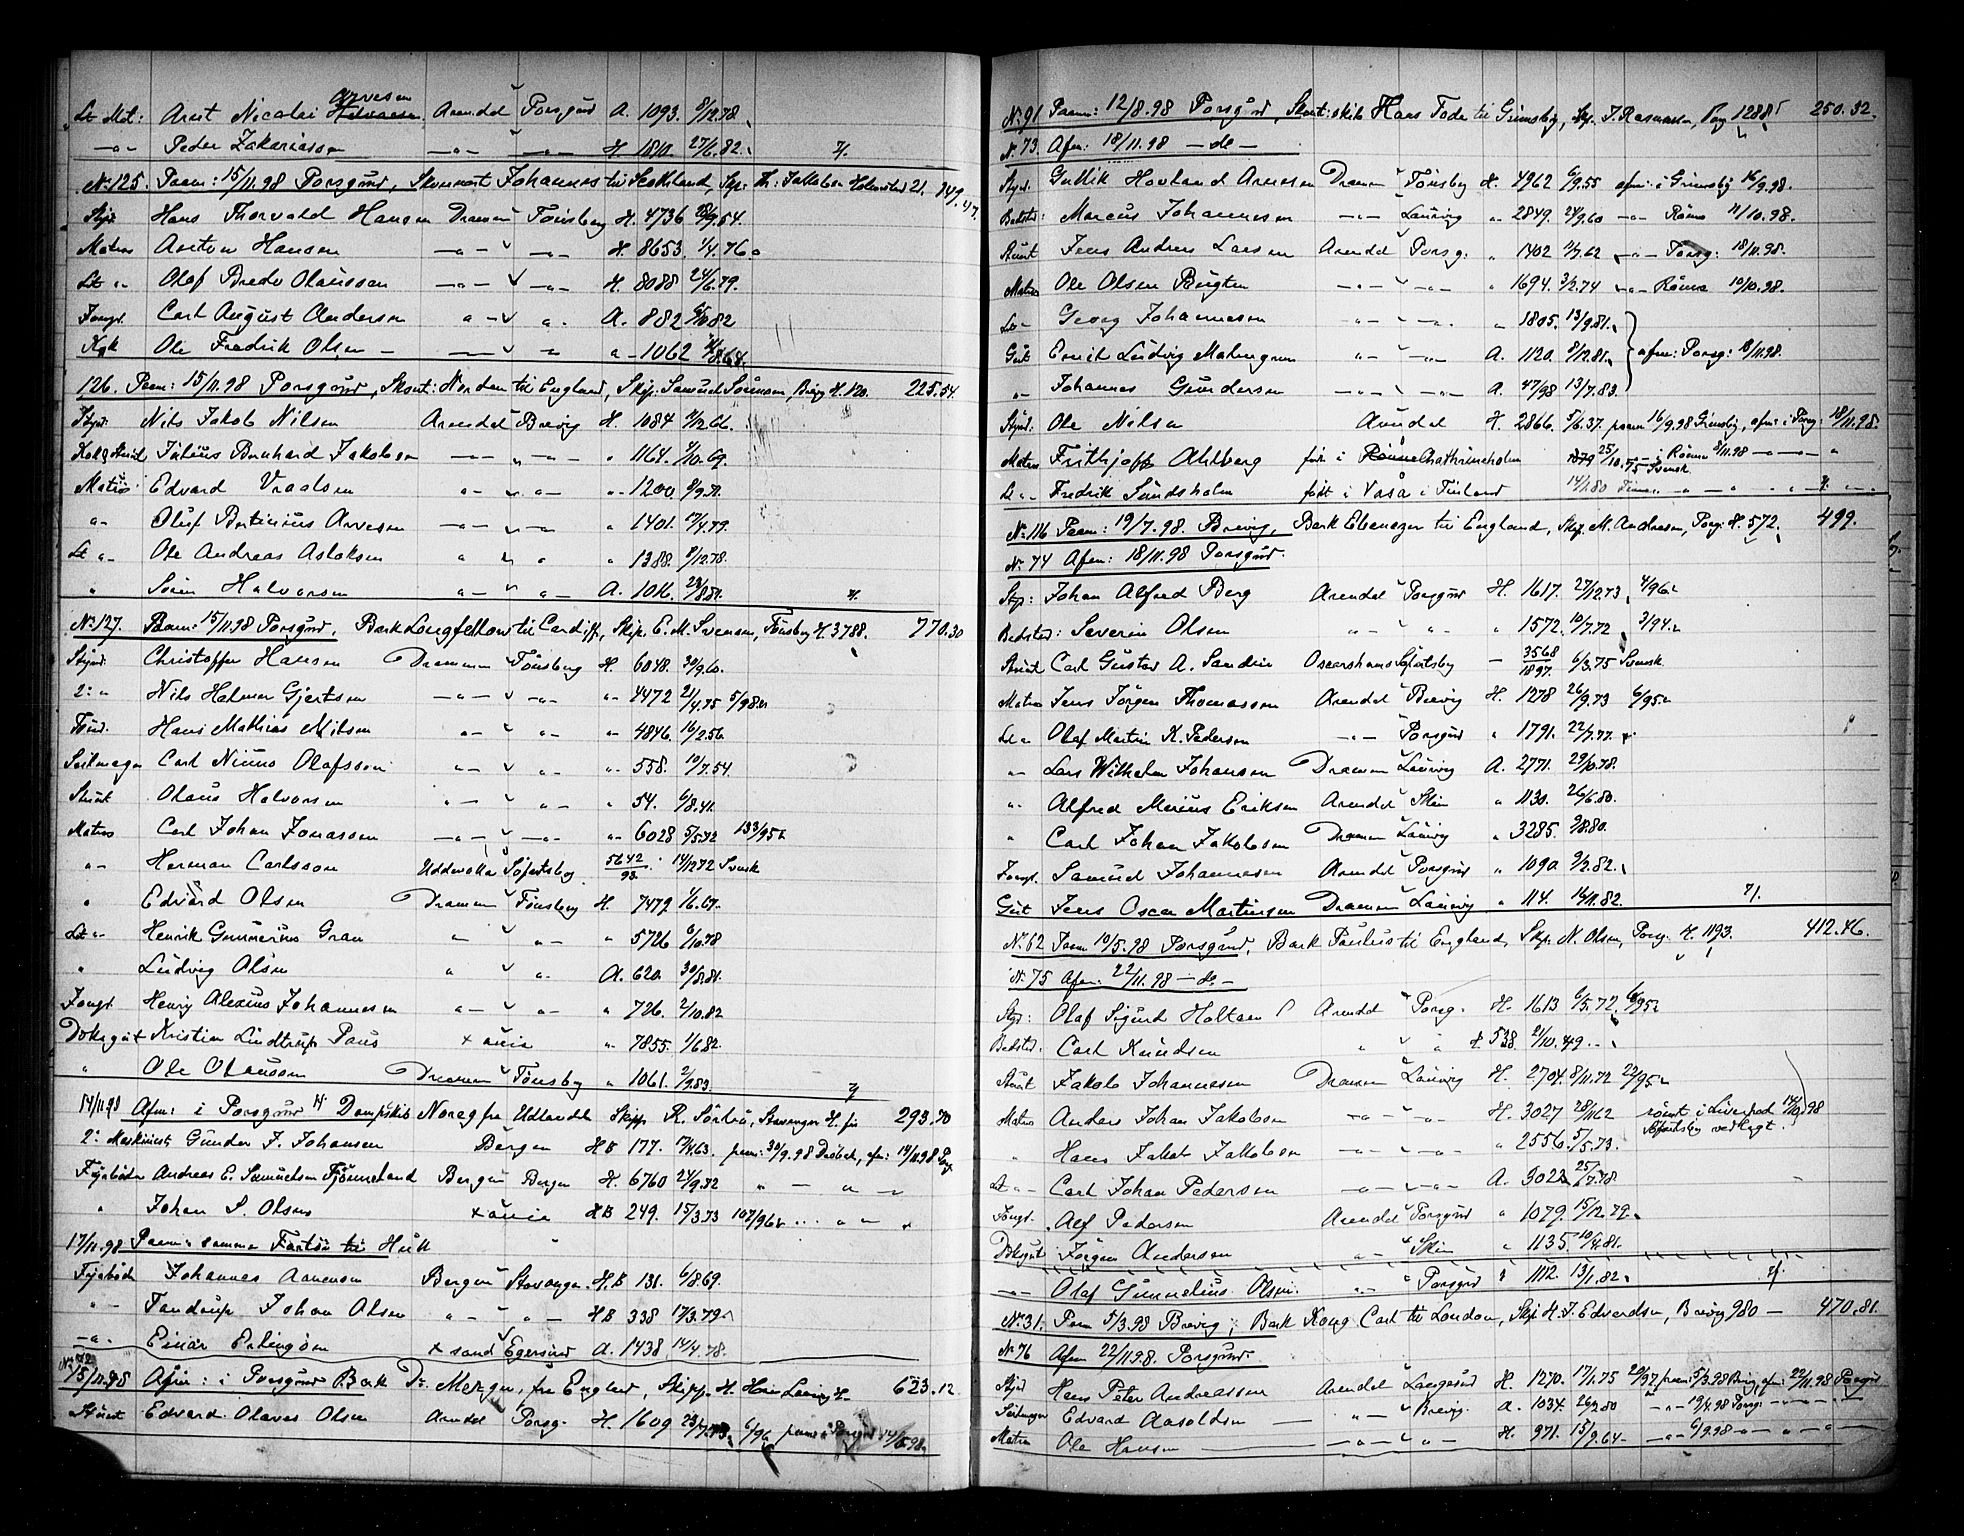 Lt Mt: Arnt Nicolai Arvesen Arendal Porsgrd A. 1093. 8/12.78
—„— Peder Zakariassen —„— —„— H. 1810. 27/6.82. 7.
No 125. Paam: 15/11.98 Porsgrund, Johannes til Skotland, Skp: Th. Jakobsen Holmestrd 21. 149.47.
Styr Hans Thorvald Hansen Dramen Tönsberg H. 4736 9.54.
Matros Anton Hansen —„— —„— H. 8653. 1/4.76
Lt „ Olaf Bredo Olaussen —„— —„— H. 8088 24/6.79.
Jungd. Carl August Andersen „ — „. A. 882 82
Kok Ole Fredrik Olsen — —„— „ „ – 1062
126. Paam: 15/11.98 Porsgrund, Skont: Norden til England, Skip. Samuel Sörensen, Brevig H. 120. 225.54.
Styr: Nils Jakob Nilsen Arendal Brevig H. 1084 66.
Kok & Tömt Julius Bernhard Jakobsen —„— „ — „ — „ 1164. 7/10.69.
Matros Edvard Vraalsen „ — „ — „ 1200 8/9.
„— Oluf Bertinius Arvesen —„— „ — „ 1401. 17/4.79.
Lt „- Ole Andreas Aslaksen „ „ „ 1388. 8/12.78.
„ Sören Halvorsen „ — „ — A. 1016. 23/8.81. 7.
No 127. Paam: 15/11.98 Porsgrund. Bark Longfellow til Cardiff, Skip. E. M. Svensen, Tönsberg H. 3788. 770.30
Styrd. Christoffer Hansen Dramen Tönsberg H. 6048. 30/9.60.
2: „ Nils Helmer Gjertsen —„— —„— „- 4472 21/4.75 5/98
Tömd. Hans Mathias Nilsen „ — „. „- 4846. 16/2.56.
Seilmager Carl Ninus Olafsson „ — „. „- 558. 10/7.54.
Stuert Olaus Halvorsen „ — „ — „. 54. 6/8.41.
Matros Carl Johan Jonassen —„— —„— „- 6028 5/5.72 133/95
„- Herman Carlsson Uddevalla Söfartsbog 5642/93. 14/12.72 Svensk
„ Edvard Olsen Dramen Tönsberg H. 7479 1/6.67.
Lt „- Henrik Gunnerius Gran „ „ — „ 5726 6/10.78
„ Ludvig Olsen „ „. A. 620. 30/8.81.
Jungd. Henry Alexius Johannesen „ — „ — „ 726. 2/10.82
Dæksgut Kristian Lindtrup Paus × ania „. 7855. 1/6.82.
„ Ole Olaussen Dramen Tönsberg „ 1061. 2/9.83. 7
14/11.98 Afm: i Porsgrund H Dampskib Noreg fra Udlandet Skipp. R. Sörbrö, Stavanger H. 293.70
2: Maskinist Gunder J. Johansen Bergen HB 177. 63. paam: 30/9.98 Drøbak, afm: 14/11.98 Porsg
Fyrböder Andreas E. Samuelsen Fjönneland Bergen Bergen H. 6760 24/9.72 „ — „ „
„ Johan S. Olsen × ania HB 249. 15/3.73 107/96 „ „ „
17/11.98 Paam: samme Fartöi til Hull
Fyrböder Johannes Arnesen Bergen Stavanger. H.B 131. 6/8.69.
„ — Tandrup Johan Olsen „ — „ — HB 338 17/3.79
—„. Einar Erlingsen × sand Egersund A. 1438 14/4.78.
No 72 15/11.98 Afm: i Porsgrund Bark Dr. Mezger, fra England, Skipp. H. Larvig H. 623.12
Stuert Edvard Olaves Olsen Arendal Porsg. H. 1609 6/96 paam: i Porsgrd 14/5.98.
No 91 Paam: 12/8.98 Porsgrd, Skont: skib Hans Tode til Grimsby, Skp. J. Rasmussen, Porsg 1288. 250.32.
No. 73. Afm: 18/11.98 — do —
Styrd. Gullik Hovland Arnesen Dramen Tönsberg H. 4962 6/9.55 afm: i Grimsby 16/9.98.
Bedstd: Marcus Johannesen —„— Laurvig „ 2849. 24/9.60 —„— Rönne 11/10.98.
Stuert Jens Andreas Larsen Arendal Porsg. „ 1402 7.62 —„— Porsg: 18/11.98.
Matros Ole Olsen Bugten —„— „ — „ 1694. 3/2.74 „— Rönne 10/10.98.
Lt – Georg Johannesen „ — „ —. „ 1805. 13/9.81.
Gut Emil Ludvig Malmgren „ — „ A. 1120. 8/12.81. } afm: Porsg: 18/11.98.
„ Johannes Gundersen —„— „ — A. 47/98 13/7.83.
Styrd. Ole Nilsen Arendal H. 2866. 5/6.37. paam 16/9.98 Grimsby, afm: i Porsg: 18/11.98.
Matros Frithjoff Ahlberg född i Rönne Chathrineholm 1879 25/10.75 Svensk — i Rönne 8/11.98 —„— „
Lt „ Fredrik Sundsholm född i Vasa i Finland 14/1.80 „ — „ — „ 7. „ —
No 116 Paam: 19/7.98. Brevig, Bark Ebenezer til England, Skip. M. Andresen, Porsg. H. 572. 499.
No 74 Afm: 18/11.98 Porsgrund.
Styr: Johan Alfred Berg Arendal Porsgrund H. 1617. 27/12.73 4/96
Bedstd: Severin Olsen „ „ „ „ 1572. 10/7.72 3/94
Stuert Carl Gustav A. Sandin Oscarshamn Söfartsby — 3568/1897. 6/3.75 Svensk
Matros Jens Jörgen Thomassen Arendal Brevig H. 1278 26/9.73 6/95
Lt „ Olaf Martin K. Pedersen —„— Porsgrund „ 1791. 22/7.77.
„- Lars Wilhelm Johansen Dramen Laurvig A. 2771. 29/10.78.
„. Alfred Marius Eriksen Arendal Skien „ 1130. 26/6.80.
„ Carl Johan Jakobsen Dramen Laurvig „ 3285. 9/8.80.
Jungd. Samuel Johannesen Arendal Porsgrund „ 1090. 9/2.82.
Gut Jens Oscar Martinsen Dramen Laurvig „ 114. 16/11.82. 7.
No. 62 Paam 10/5.98 Porsgrund, Bark Paulus til England, Skp. N. Olsen, Porsg. H. 1193. 412.46.
No. 75 Afm: 22/11.98 — do. —
Styr: Olaf Sigurd Holtan Arendal Porsg. H. 1613 6/5.72. 6/95
Bedstd. Carl Knudsen „ „ „ H. 538. 21/10.49. —
Stuert Jakob Johannesen Dramen Laurvig H. 2704. 8/11.72 22/95
Matros Anders Johan Jakobsen —„— „ — H. 3027 28/11.62 römt i Liverpool 98 Söfartsbog vedlagt.
„ Hans Jakob Jakobsen —„— „ — „ 2556. 5/5.73.
Lt „ – Carl Johan Pedersen —„— „ — A. 3022 25/7.78.
Jungd. Alf Pedersen Arendal Porsgrund „ 1079. 15/12.79.
Dæksgut Jörgen Andersen „ — Skien „ 1135. 10/4.81.
—„— Olaf Gunnelius Olsen. „ — Porsgrd „ 1112. 13/1.82. 7.
No 31. Paam 5/3.98 Brevig, Bark Kong Carl til London, Skp. H. J. Edvardsen, Brevig 980 — 470.81.
No 76 Afm 22/11 98. Porsgrund.
Styrd Hans Peter Andreassen Arendal Langesund H. 1270. 17/1.75 20/97 paam: 5/3.98 Brevig, afm: 22/11.98 Porsgrd
Seilmager Edvard Aasoldsen — „ — Brevig. A. 1034. 26/2.80 —„— 19/4.98 Porsg: —„— „
Matros Ole Hansen —„— „ — H. 971. 15/9.64 — —„— 6/9.98 —„— „ „ —